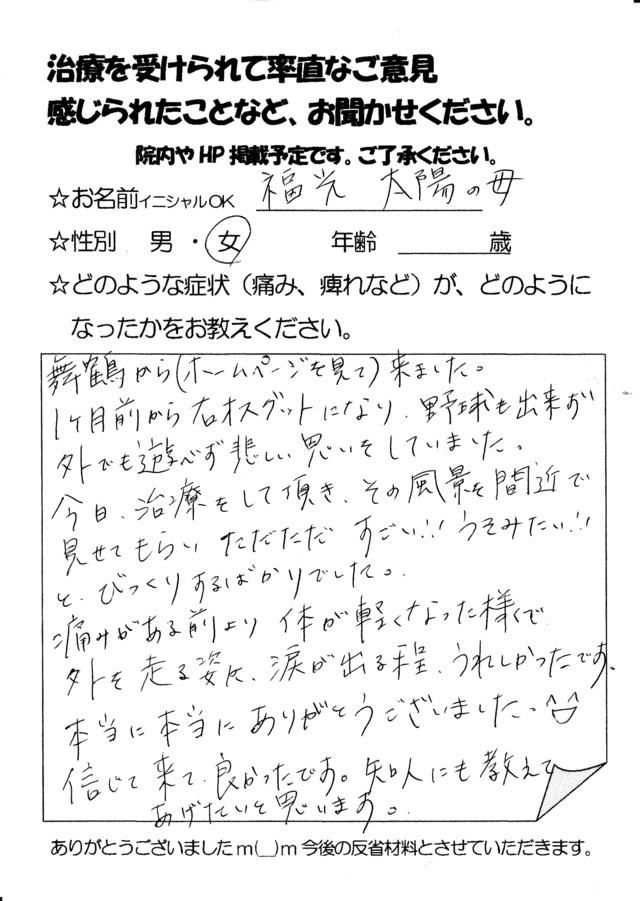 治療を受けられて率直なご意見
感じられたことなど、お聞かせください。
院内やHP掲載予定です。ご了承ください。
☆お名前イニシャルOK 福光 太陽の母
☆性別 男 ・ 女 年齢 歳
☆どのような症状（痛み、痺れなど）が、どのように
なったかをお教えください。
舞鶴から(ホームページを見て)来ました。
1ヶ月前から右オスグットになり、野球も出来ず
外でも遊べず悲しい思いをしていました。
今日、治療をして頂き、その風景を間近で
見せてもらい ただただ すごい!! うそみたい!!
と、びっくりするばかりでした。
痛みがある前より 体が軽くなった様で
外を走る姿に、涙が出る程、うれしかったです。
本当に本当にありがとうございました。^^
信じて来て、良かったです。知人にも教えて
あげたいと思います。
ありがとうございましたm(__)m今後の反省材料とさせていただきます。